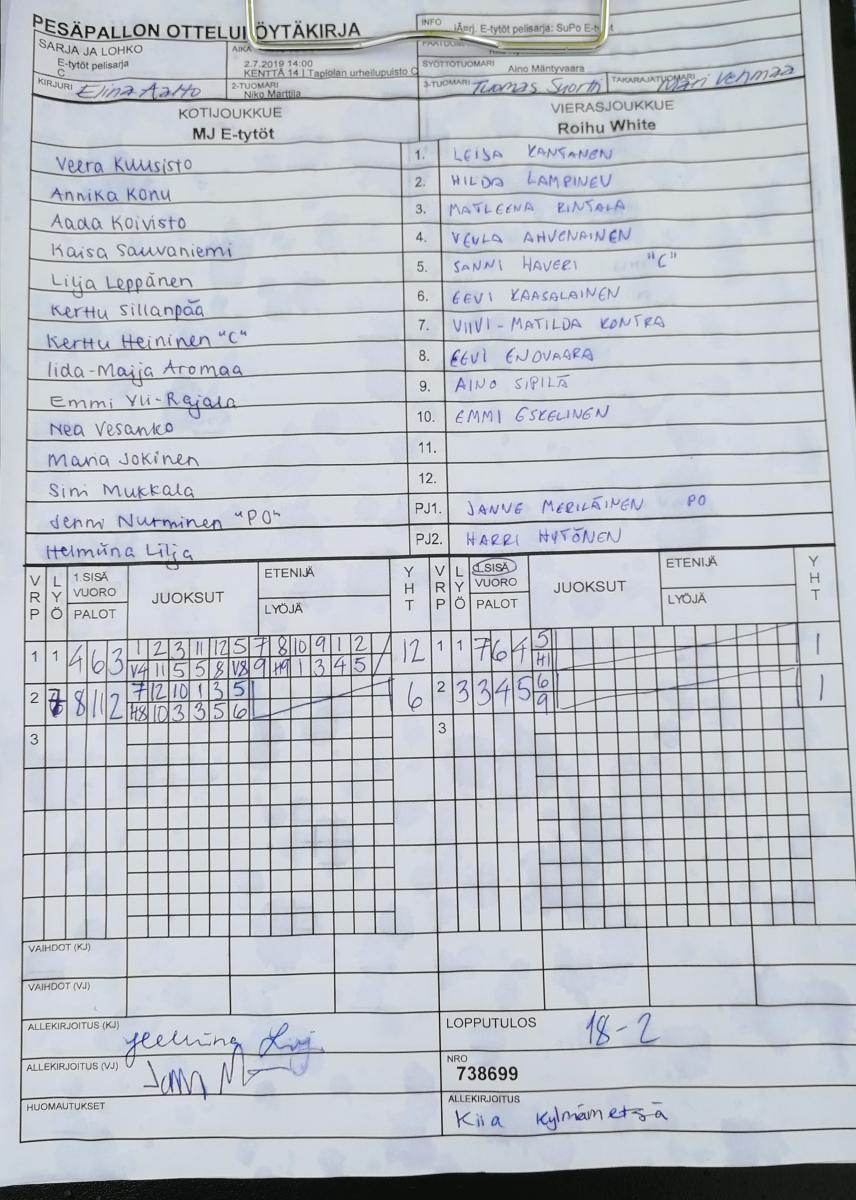 PESÄPALLON OTTELUPÖYTÄKIRJA
INFO E-tytöt pelisarja: SuPo E-t
SARJA JA LOHKO
E-tytöt pelisarja
C
AIKA
2.7.2019 14:00
KENTTÄ 14 | Tapiolan urheilupuisto C
SYÖTTÖTUOMARI Aino Mäntyvaara
KIRJURI Elina Aalto
2-TUOMARI
Niko Marttila
3-TUOMARI Tuomas Suorth
TAKARAJATUOMARI Mari Vehmaa
KOTIJOUKKUE
MJ E-tytöt
VIERASJOUKKUE
Roihu White
Veera Kuusisto 1. LEIJA KANTANEN
Annika Konu 2. HILDA LAMPINEN
Aada Koivisto 3. MATLEENA RINTALA
Kaisa Sauvaniemi 4. VEULA AHVENAINEN
Lilja Leppänen 5. SANNI HAVERI "C"
Kerttu Sillanpää 6. EEVI KAASALAINEN
Kerttu Heininen "C" 7. VIIVI-MATILDA KONTRA
Iida-Maija Aromaa 8. EEVI ENOVAARA
Emmi Yli-Rajala 9. AINO SIPILÄ
Nea Vesanko 10. EMMI ESKELINEN
Maria Jokinen 11.
Sini Mukkala 12.
Jenni Nurminen "PO" PJ1. JANNE MERILÄINEN PO
Helmiina Lilja PJ2. HARRI HYTÖNEN
VRP LYÖ 1.SISÄ VUORO PALOT JUOKSUT ETENIJÄ LYÖJÄ YHT VRP LYÖ 1.SISÄ VUORO PALOT JUOKSUT ETENIJÄ LYÖJÄ YHT
1 1 4 6 3 1 2 3 11 12 5 7 8 10 9 1 2 12 1 1 7 6 4 5 1
V4 11 5 5 8 V8 9 H9 1 3 4 5 H1
2 7 8 11 2 7 12 10 1 3 5 6 2 3 3 4 5 6 1
H8 10 3 3 5 6 9
3 3
VAIHDOT (KJ)
VAIHDOT (VJ)
ALLEKIRJOITUS (KJ) Helmiina Lilja
LOPPUTULOS 18-2
ALLEKIRJOITUS (VJ)
NRO
738699
HUOMAUTUKSET
ALLEKIRJOITUS
Kiia Kylmämetsä